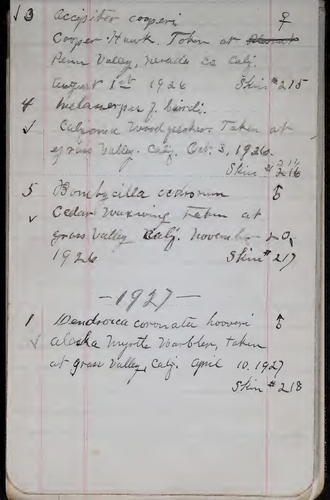 √3 Accipiter cooperi ♀
Cooper Hawk. Taken at
Penn Valley, Nevada Co Calif.
August 1st 1926 Skin #215
4 Melanerpes f. bairdi.
√ California Woodpecker. Taken at
Grass Valley. Calif. Oct. 3, 1926.
Skin #216
5 Bombycilla cedrorum ♂
√ Cedar Waxwing taken at
Grass Valley Calif. November 20,
1926 Skin #217
-1927-
1 Dendroica coronata hooveri ♂
√ Alaska Myrtle Warbler, taken
at Grass Valley, Calif. April 10. 1927
Skin #218